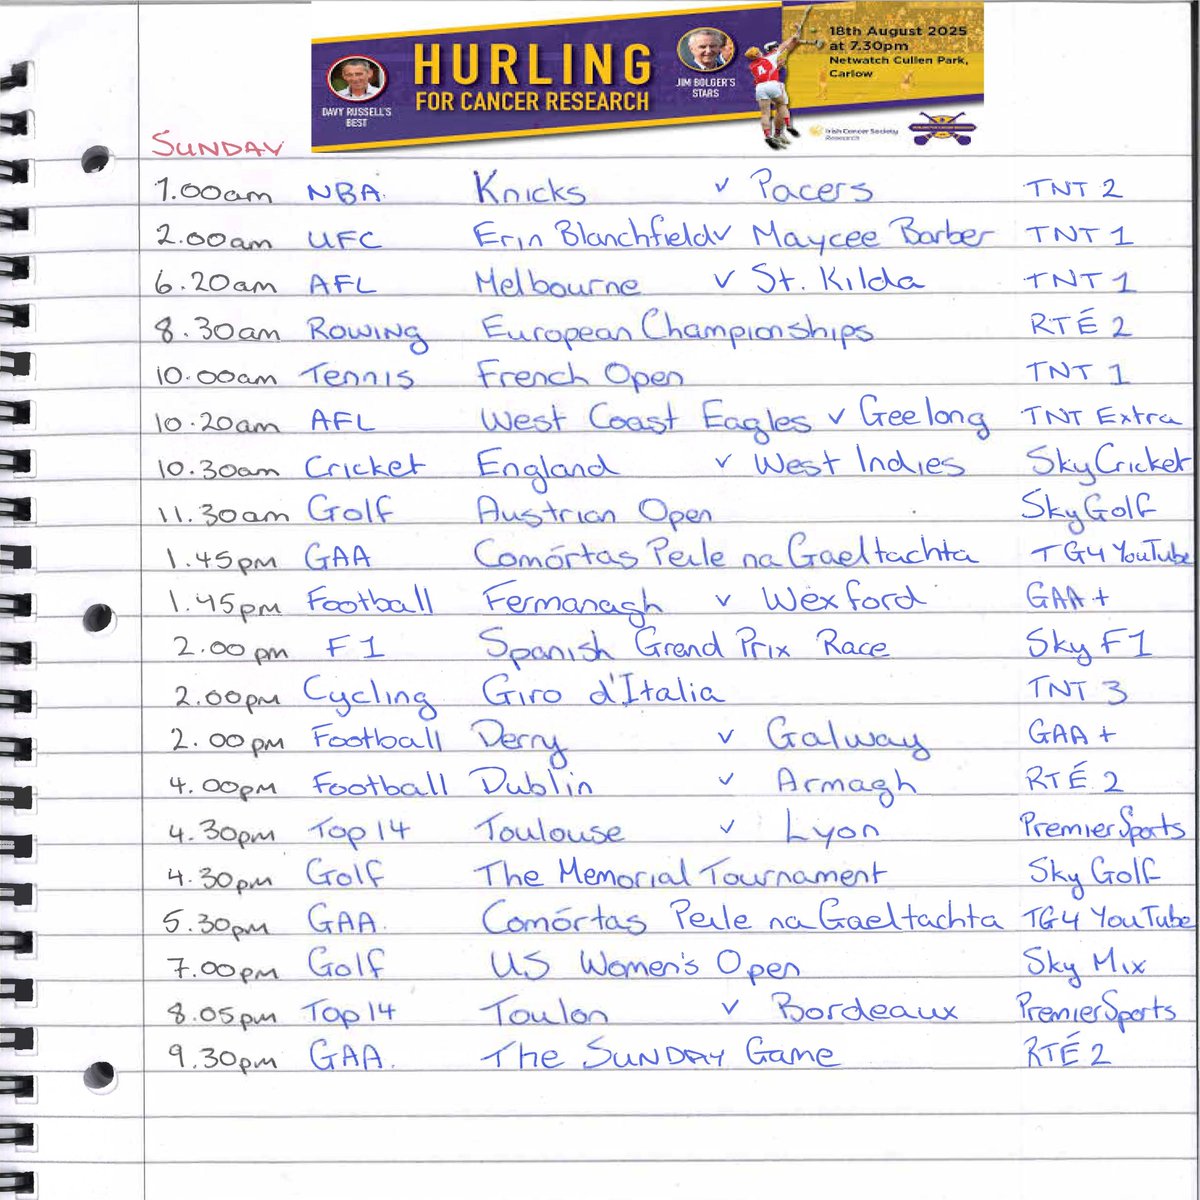 HURLING
FOR CANCER RESEARCH
DAVY RUSSELL'S
BEST
JIM BOLGER'S
STARS
18th August 2025
at 7.30pm
Netwatch Cullen Park,
Carlow
Irish Cancer Society
Research
SUNDAY
1.00am NBA. Knicks v Pacers TNT 2
2.00am UFC Erin Blanchfield v Maycee Barber TNT 1
6.20am AFL Melbourne v St. Kilda TNT 1
8.30am Rowing European Championships RTÉ 2
10.00am Tennis French Open TNT 1
10.20am AFL West Coast Eagles v Geelong TNT Extra
10.30am Cricket England v West Indies Sky Cricket
11.30am Golf Austrian Open Sky Golf
1.45pm GAA Comórtas Peile na Gaeltachta TG4 YouTube
1.45pm Football Fermanagh v Wexford GAA +
2.00pm F1 Spanish Grand Prix Race Sky F1
2.00pm Cycling Giro d'Italia TNT 3
2.00pm Football Derry v Galway GAA +
4.00pm Football Dublin v Armagh RTÉ 2
4.30pm Top 14 Toulouse v Lyon Premier Sports
4.30pm Golf The Memorial Tournament Sky Golf
5.30pm GAA. Comórtas Peile na Gaeltachta TG4 YouTube
7.00pm Golf US Women's Open Sky Mix
8.05pm Top 14 Toulon v Bordeaux Premier Sports
9.30pm GAA. The Sunday Game RTÉ 2